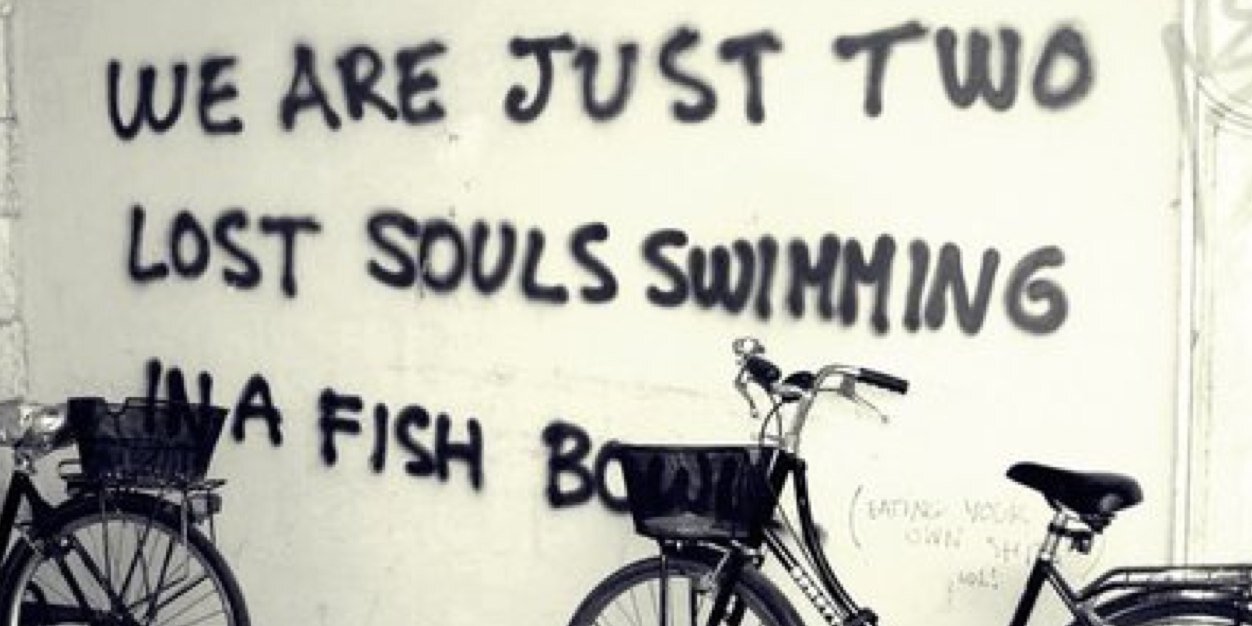 WE ARE JUST TWO
LOST SOULS SWIMMING
IN A FISH BOWL
(EATING YOUR
OWN